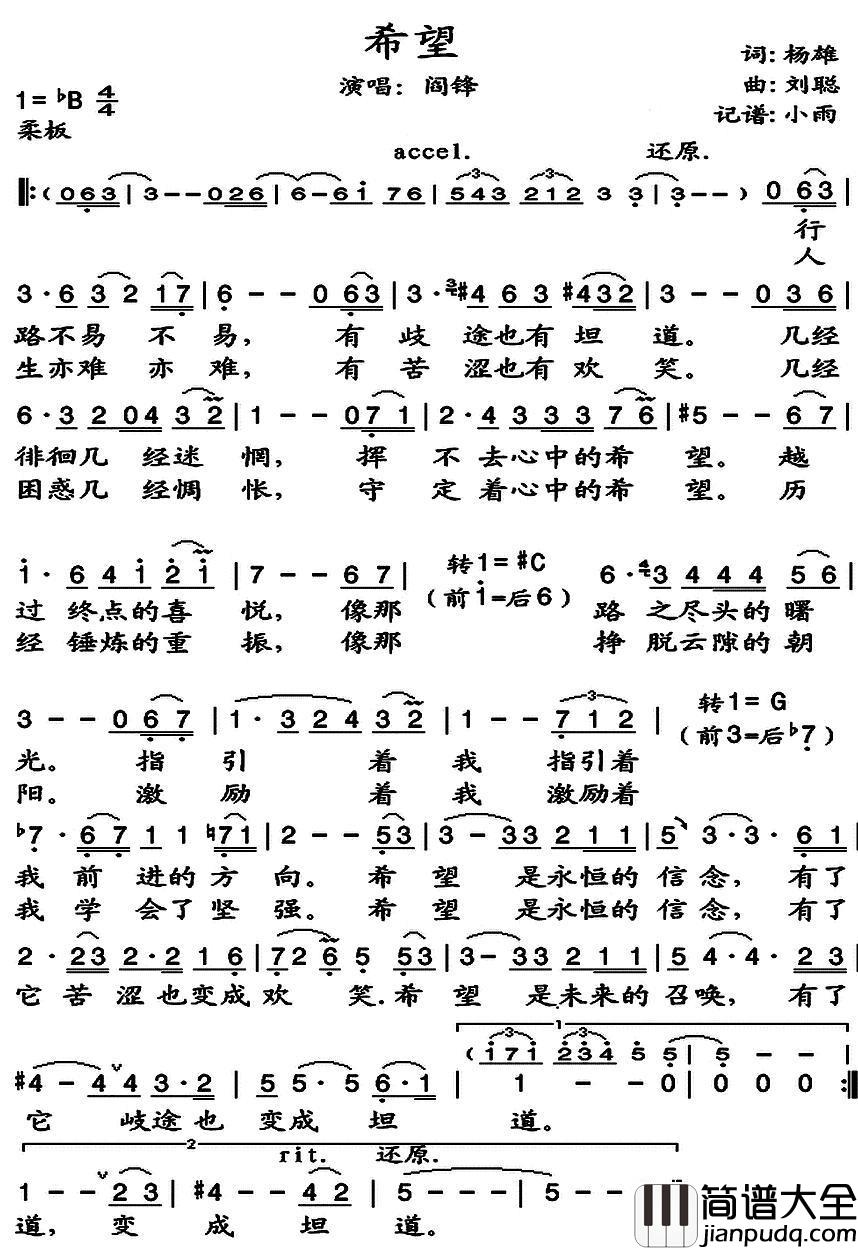 希望
词:杨雄
演唱：阎锋
曲:刘聪
1=♭B 4/4
记谱:小雨
柔板
accel. 还原.
‖:(063|3--026|6-6i 76|543 212 3 3|3--) 063|
行
人
3·6 32 17|6--063|3·#4 63 #432|3--036|
路不易 不 易， 有 歧 途也有 坦 道。 几经
生亦难 亦 难， 有 苦 涩也有 欢 笑。 几经
6·3 2 04 32|1--071|2·4 333 76|#5--67|
徘徊几 经迷 惘， 挥 不 去心中的希 望。 越
困惑几 经惆 怅， 守 定 着心中的希 望。 历
i·6 4i 2i|7--67| 转1=#C (前i=后6) 6·3 444 56|
过 终点的喜 悦， 像那 路 之尽头的曙
经 锤炼的重 振， 像那 挣 脱云隙的朝
3--067|1·324 32|1--712| 转1=G (前3=后♭7)
光。 指 引 着 我 指引着
阳。 激 励 着 我 激励着
♭7·67 11 ♮71|2--53|3-33 211|5 3·3·61|
我 前 进的 方 向。 希 望 是永恒的 信 念， 有了
我 学 会了 坚 强。 希 望 是永恒的 信 念， 有了
2·23 2·2 16|726 5 53|3-33 211|5 4·4·23|
它 苦 涩也变成欢 笑.希 望 是未来的 召唤， 有了
1
(i71 234 5 5|5--|
#4-44 3·2|55·5 6·1|1-0|000:‖
它 歧途也 变成 坦 道。
2
rit. 还原.
1--23|#4--42|5---|5--
道， 变 成 坦 道。
简谱大全
jianpudq.com